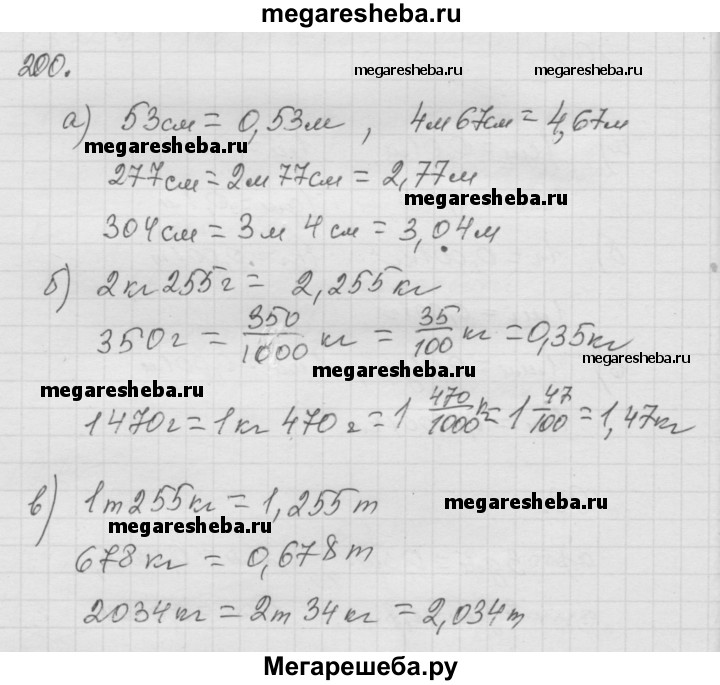 megaresheba.ru
200.
megaresheba.ru megaresheba.ru
а) 53см = 0,53м , 4м 67см = 4,67м
megaresheba.ru
277см = 2м 77см = 2,77м
megaresheba.ru
304см = 3м 4см = 3,04м
б) 2кг 255г = 2,255кг
350г = 350/1000 кг = 35/100 кг = 0,35кг
megaresheba.ru
megaresheba.ru
megaresheba.ru
1470г = 1кг 470г = 1 470/1000 к = 1 47/100 = 1,47кг
в) 1т 255кг = 1,255т
megaresheba.ru
megaresheba.ru
678кг = 0,678т
2034кг = 2т 34кг = 2,034т
Мегарешеба.ру